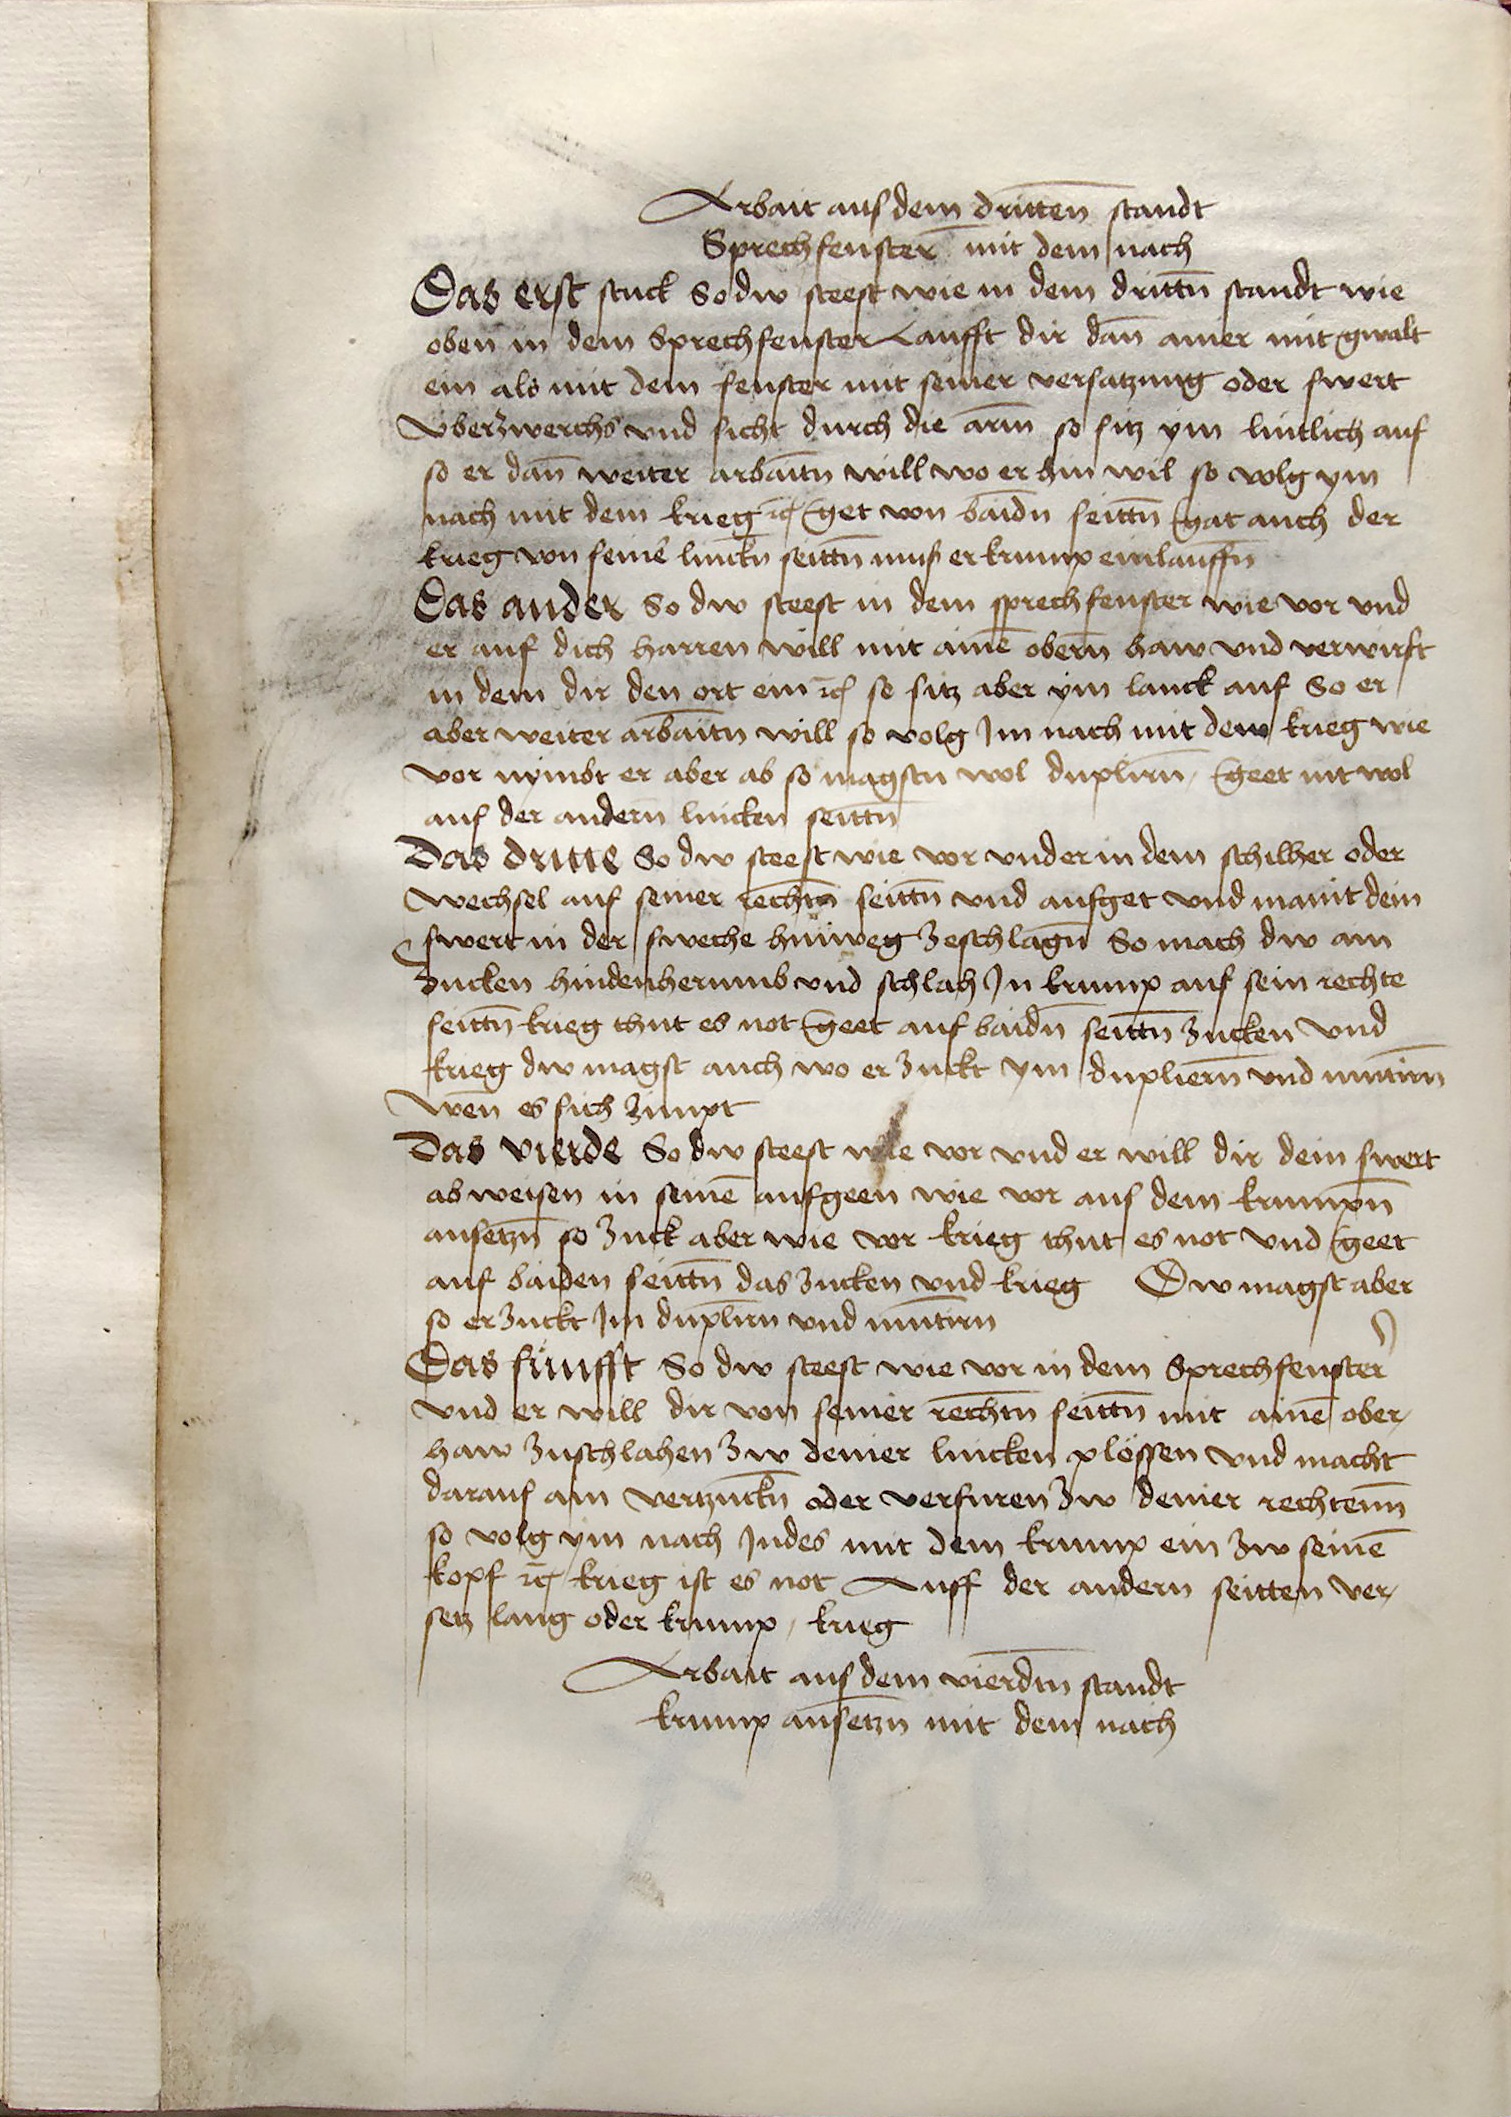 Arbait aus dem dritten̄ standt
Sprechfenster mit dem nach
Das erst stuck So dw steest wie in dem drittn̄ standt wie
oben in dem Sprechfenster Laufft dir dan̄ ainer mit gwalt
ein als mit dem fenster mit seiner versatzung oder swert
vberzwerchs vnd sicht durch die arm̄ so sitz ym lintlich auf
so er dan̄ weiter arbaitn̄ will wo er hin wil so volg ym
nach mit dem krieg ꝛc̄ get von baidn̄ seittn̄ gat auch der
krieg von seinē linckn̄ seittn̄ mus er krump einlauffn̄
Das ander So dw steest in dem sprechfenster wie vor vnd
er auf dich harren will mit ainē obern̄ haw vnd verwirft
in dem dir den ort ein ꝛc̄ so sitz aber ym lanck auf So er
aber weiter arbaitn̄ will so volg Im nach mit dem krieg wie
vor nymbt er aber ab so magstu wol duplirn̄ / geet nit wol
auf der andern̄ lincken seittn̄
Das dritte So dw steest wie vor vnd er in dem schilher oder
wechsel auf seiner rechtn̄ seittn̄ vnd aufget vnd maint dein
swert in der sweche hinweg zeschlagn̄ So mach dw am
zucken hindenherumb vnd schlach In krump auf sein rechte
seittn̄ krieg thut es not geet auf baidn̄ seittn̄ zucken vnd
krieg dw magst auch wo er zuckt ym duplieren̄ vnd mutirn̄
wen̄ es sich zimpt
Das vierde So dw steest wie vor vnd er will dir dein swert
abweisen in seinē aufgeen wie vor aus dem krumpn̄
ansetzn̄ so zuck aber wie vor krieg thut es not vnd geet
auf baiden seittn̄ das zucken vnd krieg Dw magst aber
so er zuckt Im duplirn̄ vnd mutirn̄
Das fünfft So dw steest wie vor in dem Sprechfenster
vnd er will dir von seiner rechtn̄ seittn̄ mit ainē ober/
haw zuschlahen zw deiner lincken plössen vnd macht
darauf ain vertzuckn̄ oder verfuren zw deiner rechtenn̄
so volg ym nach Indes mit dem krump ein zw seinē
kopf ꝛc̄ krieg ist es not Auff der andern seitten ver/
setz lang oder krump / krieg
Arbait aus dem vierdn̄ standt
krump ansetzn̄ mit dem nach